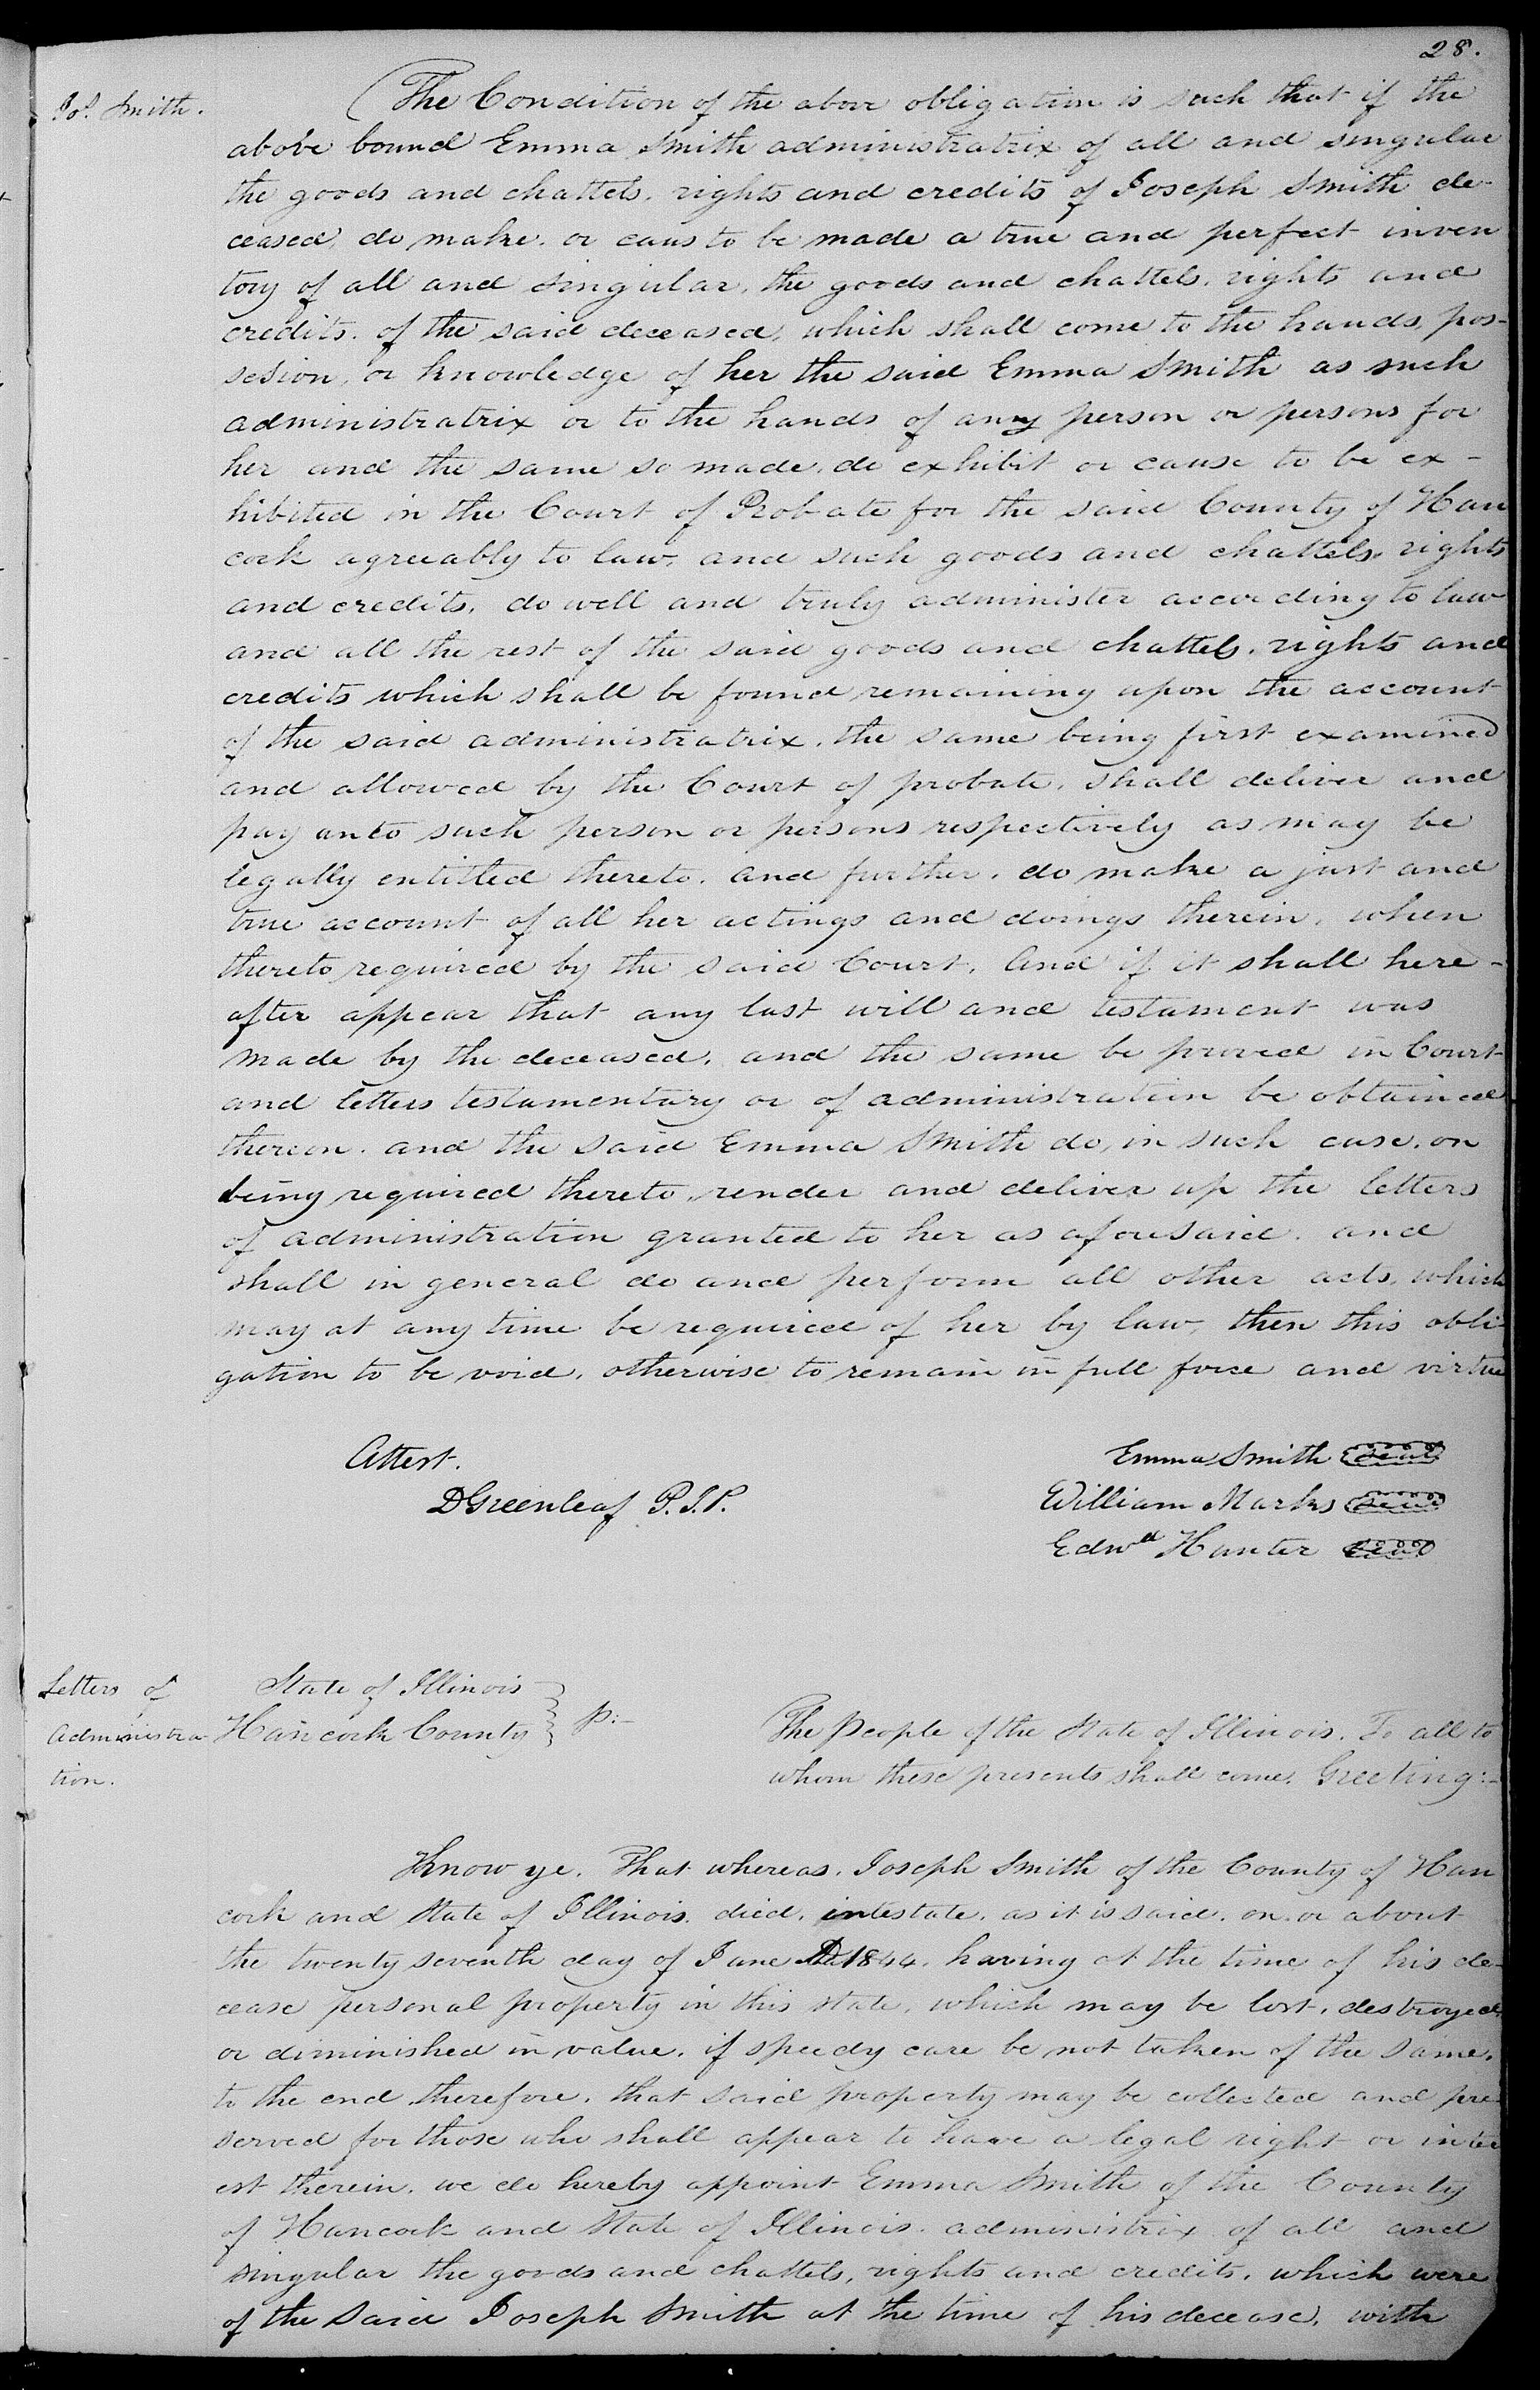 28.
Jos. Smith.
(The Condition of the above obligation is such that if the
above bound Emma Smith administratrix of all and singular
the goods and chattels, rights and credits of Joseph Smith de-
ceased, do make, or caus to be made a true and perfect inven
tory of all and singular, the goods and chattels, rights and
credits, of the said deceased, which shall come to the hands, pos-
session, or knowledge of her the said Emma Smith as such
administratrix or to the hands of any person or persons for
her and the same so made, do exhibit or cause to be ex-
hibited in the Court of Probate for the said County of Han
cock agreeably to law, and such goods and chattels, rights
and credits, do well and truly administer according to law
and all the rest of the said goods and chattels, rights and
credits which shall be found remaining upon the account
of the said administratrix, the same being first examined
and allowed by the Court of probate, shall deliver and
pay unto such person or persons respectively as may be
legally entitled thereto, and further, do make a just and
true account of all her actings and doings therein, when
thereto required by the said Court, And if it shall here-
after appear that any last will and testament was
made by the deceased, and the same be proved in Court
and letters testamentary or of administration be obtained
thereon, and the said Emma Smith do, in such case, on
being required thereto, render and deliver up the letters
of administration granted to her as aforesaid, and
shall in general do and perform all other acts, which
may at any time be required of her by law, then this obli-
gation to be void, otherwise to remain in full force and virtue
Attest.
DGreenleaf P.J.P.
Emma Smith seal
William Marks seal
Edwd Hunter seal
Letters of
Administra
tion.
State of Illinois
Hancock County
The People of the State of Illinois, To all to
whom these presents shall come, Greeting:-
Know ye, That whereas, Joseph Smith of the County of Han
cock and State of Illinois, died, intestate, as it is said, on, or about
the twenty seventh day of June AD 1844, having at the time of his de-
cease personal property in this state, which may be lost, destroyed,
or diminished in value, if speedy care be not taken of the same,
to the end, therefore, that said property may be collected and pre-
served for those who shall appear to have a legal right or inter
est therein, we do hereby appoint Emma Smith of the County
of Hancock and State of Illinois, administrix of all and
singular the goods and chattels, rights and credits, which were
of the said Joseph Smith at the time of his decease, with